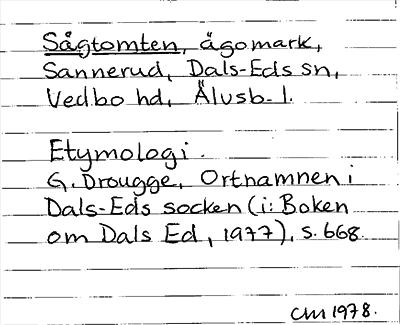 Sågtomten, ägomark,
Sannerud, Dals-Eds sn,
Vedbo hd, Älvsb. l.
Etymologi.
G. Drougge, Ortnamnen i
Dals-Eds socken (i: Boken
om Dals Ed, 1977), s. 668.
CM 1978.